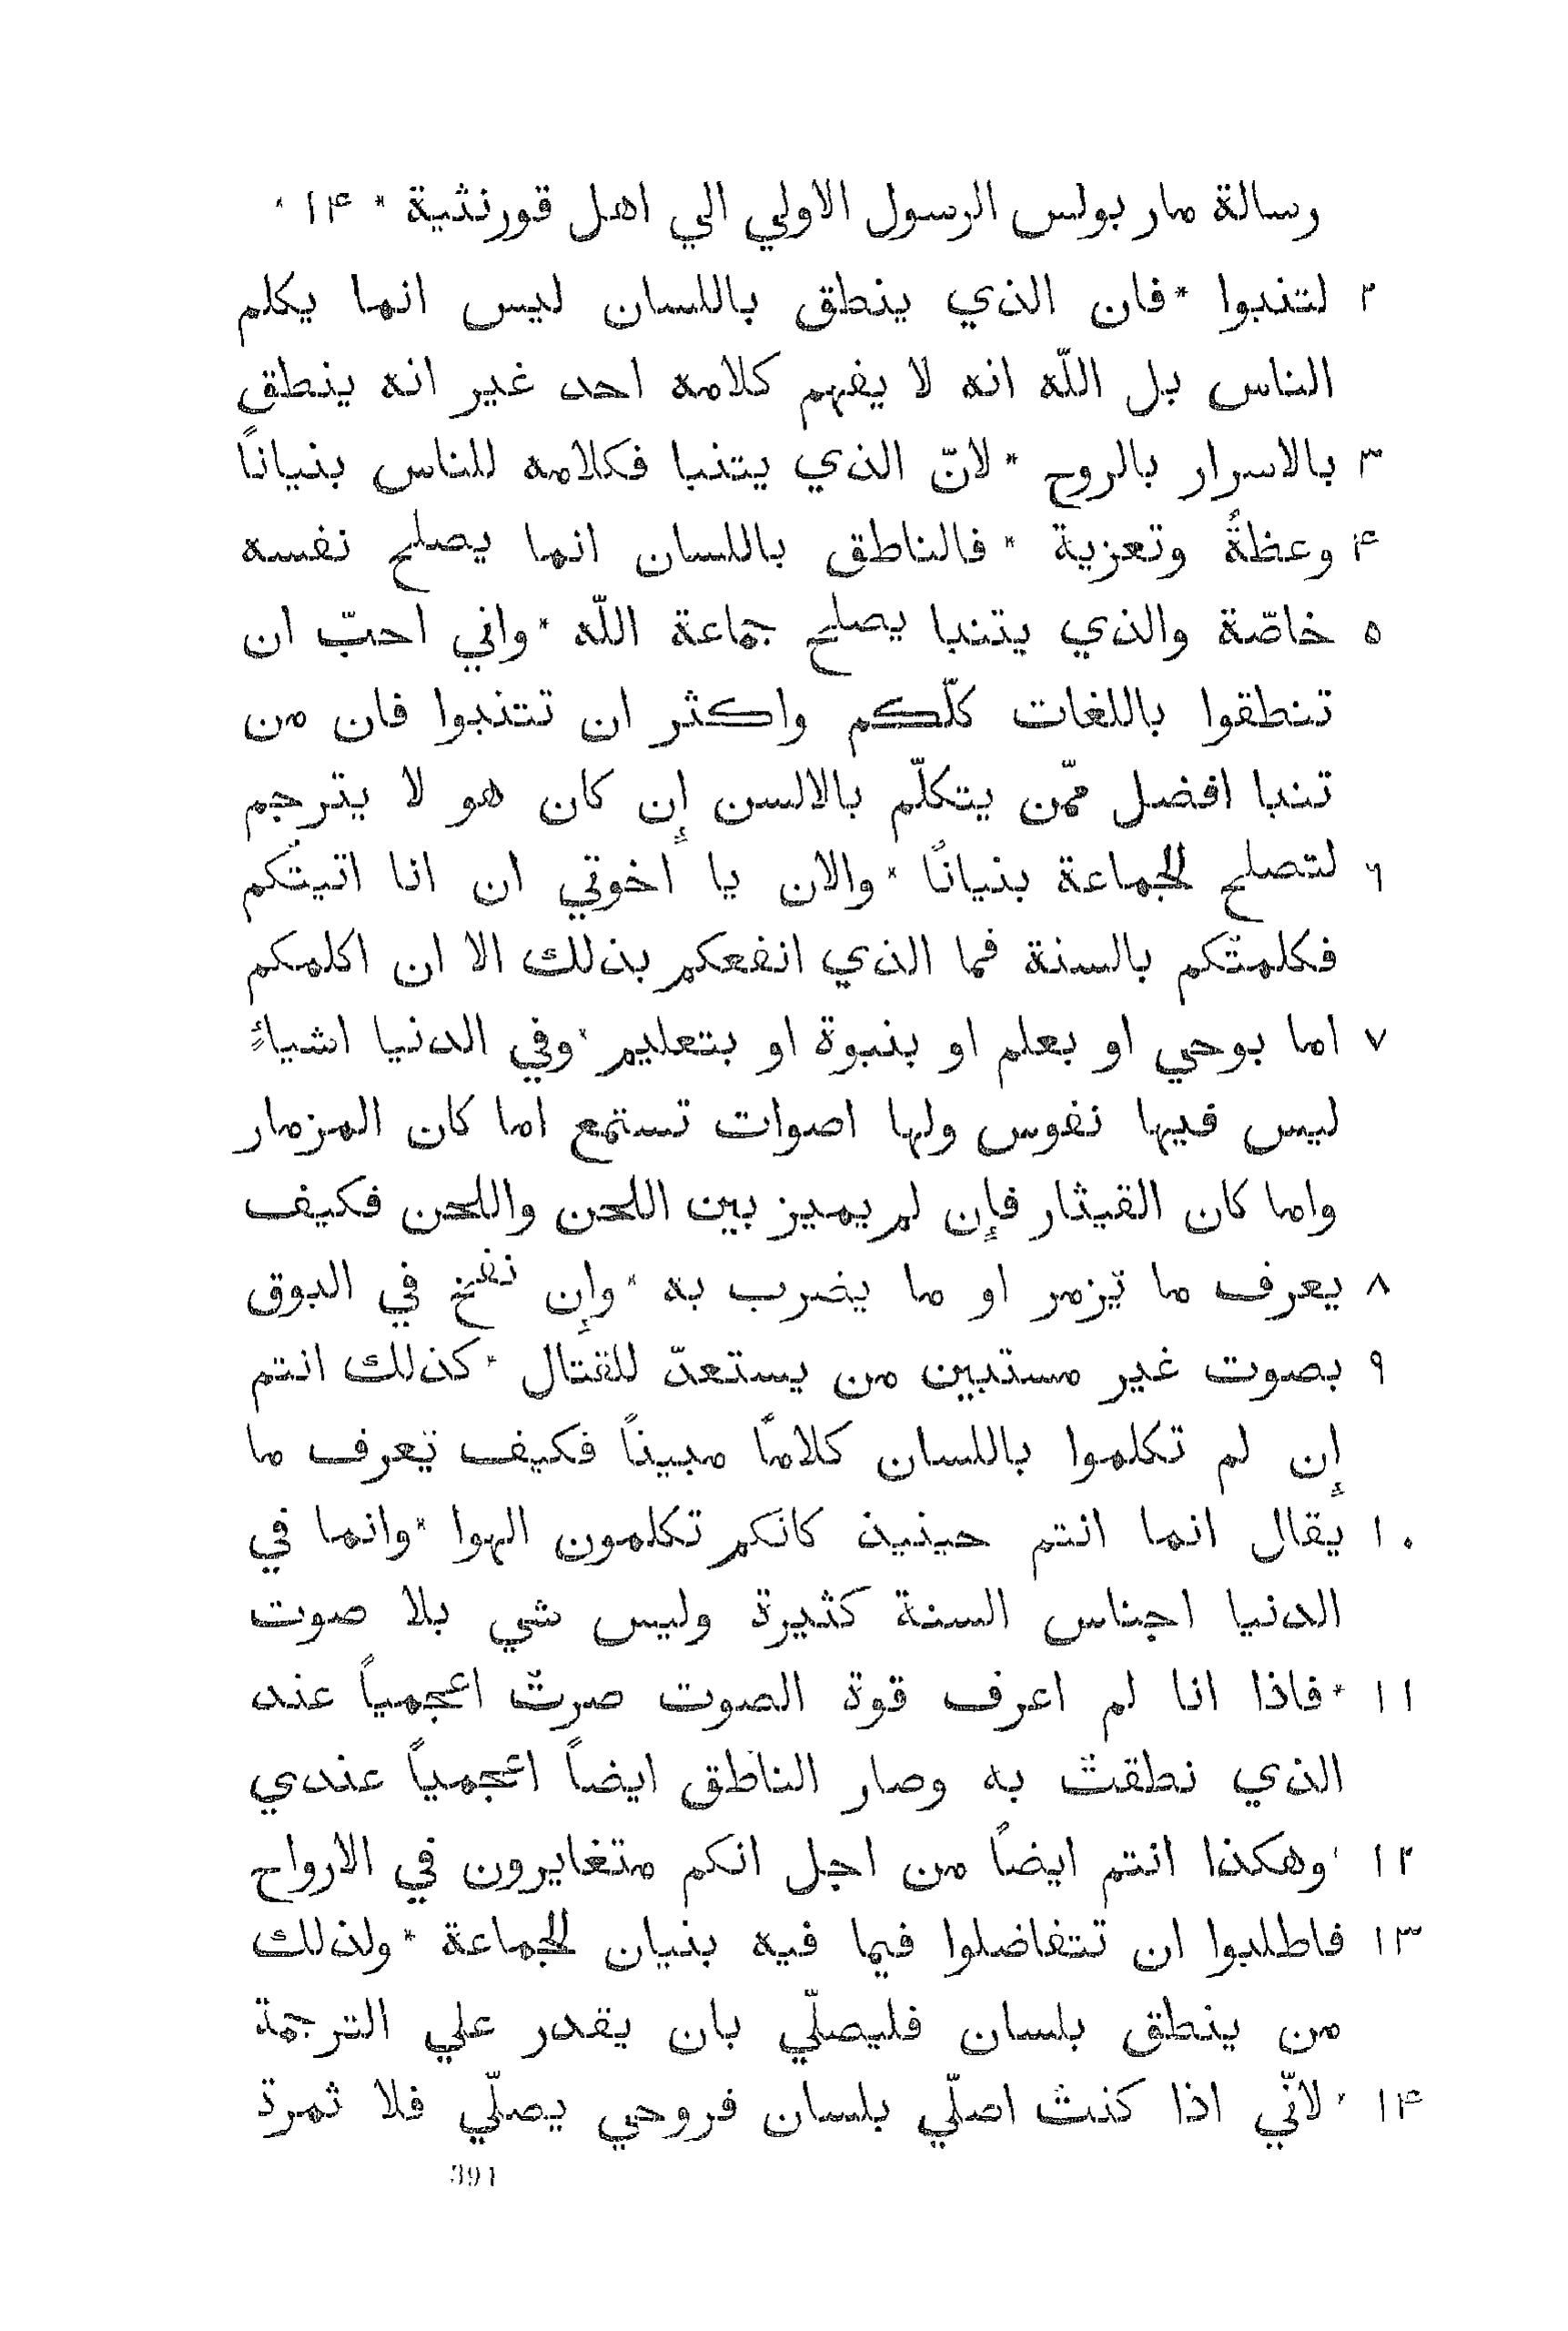 رسالة مار بولس الرسول الاولي الي اهل قورنثية * ١۴ *
٢ لتنبوا * فان الذي ينطق باللسان ليس انما يكلم
الناس بل اللّه انه لا يفهم كلامه احد غير انه ينطق
٣ بالاسرار بالروح * لانّ الذي يتنبا فكلامه للناس بنيانًا
۴ وعظةً وتعزية * فالناطق باللسان انما يصلح نفسه
٥ خاصّة والذي يتنبا يصلح جماعة اللّه * واني احبّ ان
تنطقوا باللغات كلّكم واكثر ان تتنبوا فان من
تنبا افضل ممّن يتكلّم بالالسن إن كان هو لا يترجم
٦ لتصلح للجماعة بنيانًا * والان يا اخوتي ان انا اتيتُكم
فكلمتُكم بالسنة فما الذي انفعكم بذلك الا ان اكلمكم
٧ اما بوحي او بعلم او بنبوة او بتعليم * وفي الدنيا اشياءٍ
ليس فيها نفوس ولها اصوات تستمع اما كان المزمار
واما كان القيثار فإن لم يميز بين اللحن واللحن فكيف
٨ يعرف ما يّزمر او ما يضرب به * وإن نفخ في البوق
٩ بصوت غير مستبين من يستعدّ للقتال * كذلك انتم
إن لم تكلموا باللسان كلامًا مبينًا فكيف يّعرف ما
١٠ يقال انما انتم حينيذ كانكم تكلمون الهوا * وانما في
الدنيا اجناس السنة كثيرة وليس شي بلا صوت
١١ * فاذا انا لم اعرف قوة الصوت صرتُ اعجمياً عند
الذي نطقتُ به وصار الناطق ايضاً اعجمياً عندي
١٢ * وهكذا انتم ايضاً من اجل انكم متغايرون في الارواح
١٣ فاطلبوا ان تتفاضلوا فيما فيه بنيان للجماعة * ولذلك
من ينطق بلسان فليصلّي بان يقدر علي الترجمة
١۴ * لانّي اذا كنتُ اصلّي بلسان فروحي يصلّي فلا ثمرة
391